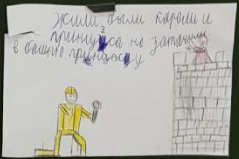 Жили были король и
принцеса но заточили
в башню принцессу